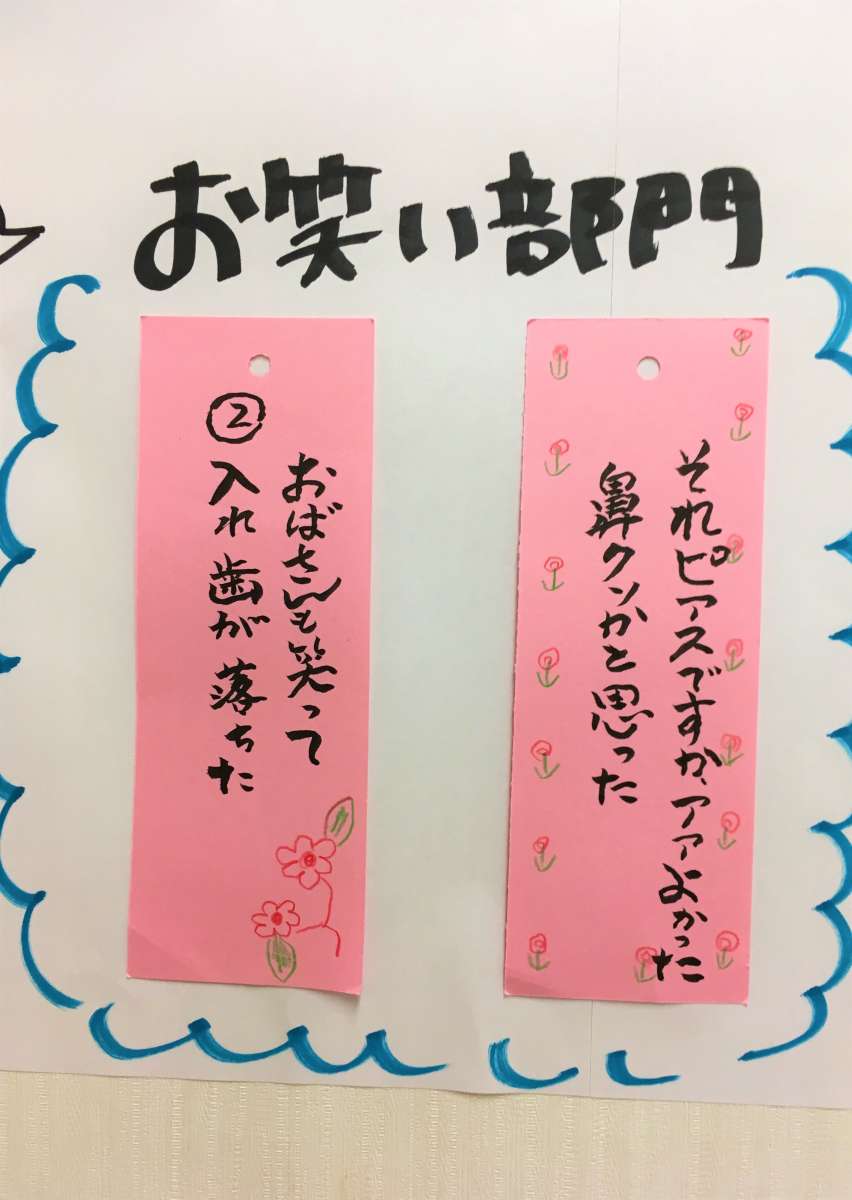 お笑い部門
それピアスですか、アアよかった
鼻クソかと思った
おばさんも笑って
② 入れ歯が落ちた